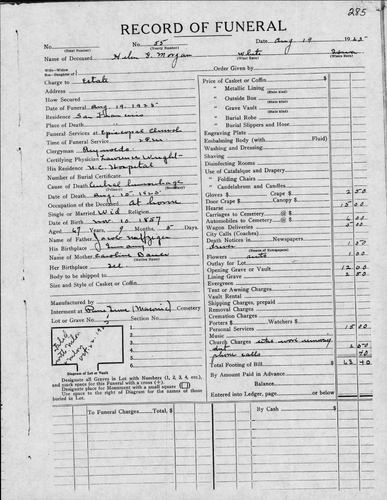 285
RECORD OF FUNERAL
No. 85 Date Aug 19 1925
(Total Number) (Yearly Number)
Name of Deceased Helen F. Morgan White
(What Race) (Where Born)
Wife—Widow
Son—Daughter of
Order Given by
Charge to Estate
Address
How Secured
Date of Funeral Aug. 19. 1925
Residence San Francisco
Place of Death
Funeral Services at Episcopal Church
Time of Funeral Service
Clergyman
Certifying Physician Lawrence Wright
His Residence U.C. Hospital
Number of Burial Certificate
Cause of Death Cerebral
Date of Death Aug. 15 1925
Occupation of the Deceased at home
Single or Married Wid Religion
Date of Birth Nov 10 1857
Aged 67 Years, 9 Months, 5 Days
Name of Father Jacob
His Birthplace
Name of Mother Caroline
(Maiden Name)
Her Birthplace
Body to be shipped to
Size and Style of Casket or Coffin
Manufactured by
Interment at (Masonic) Cemetery
Lot or Grave No. Section No.
Diagram of Lot or Vault
Designate all Graves in Lot with Numbers (1, 2, 3, 4, etc.),
and mark space for this Funeral with a cross (+).
Designate place for Monument with a small square
Use space to the right of Diagram for the names of those
buried in Lot.
Price of Casket or Coffin
" Metallic Lining
(State Kind)
" Outside Box
(State Kind)
" Grave Vault
(State Kind)
" Burial Robe
(State Kind)
" Burial Slippers and Hose
Engraving Plate
Embalming Body (with Fluid)
Washing and Dressing
Shaving
Disinfecting Rooms
Use of Catafalque and Drapery
" Folding Chairs
" Candelabrum and Candles
Gloves $ Crape $ 2 50
Door Crape Canopy $
Hearse 15 00
Carriages to Cemetery @ $
Automobiles to Cemetery @ $ 6 00
Wagon Deliveries 5 00
City Calls (Coaches)
Death Notices in Newspapers
(Names of Newspapers)
Flowers
Outlay for Lot
Opening Grave or Vault 12 00
Lining Grave 2 50
Evergreen
Tent or Awning Charges
Vault Rental
Shipping Charges, prepaid
Removal Charges
Cremation Charges
Porters $ Watchers $
Personal Services 15 00
Music
Church Charges
phone calls 40
Total Footing of Bill 63 40
By Amount Paid in Advance
Balance
Entered into Ledger, page or below.
To Funeral Charges Total, $
By Cash $